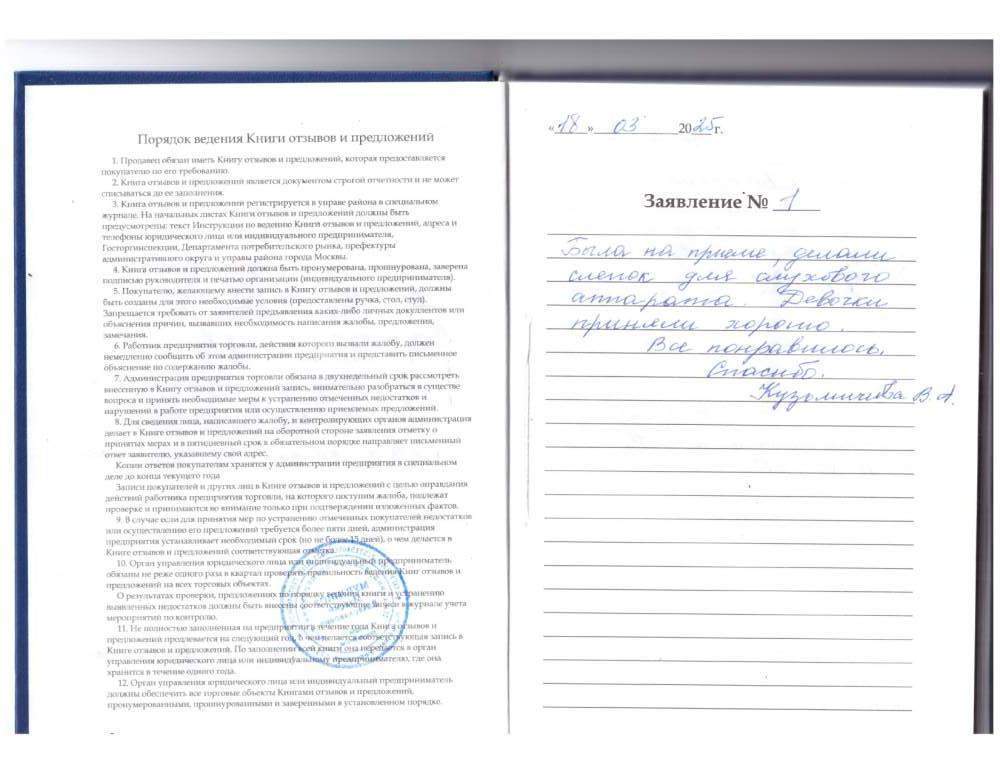 Порядок ведения Книги отзывов и предложений
1. Продавец обязан иметь Книгу отзывов и предложений, которая предоставляется
покупателю по его требованию.
2. Книга отзывов и предложений является документом строгой отчетности и не может
списываться до ее заполнения.
3. Книга отзывов и предложений регистрируется в управе района в специальном
журнале. На начальных листах Книги отзывов и предложений должны быть
предусмотрены: текст Инструкции по ведению Книги отзывов и предложений, адреса и
телефоны юридического лица или индивидуального предпринимателя,
Госторгинспекции, Департамента потребительского рынка, префектуры
административного округа и управы района города Москвы.
4. Книга отзывов и предложений должна быть пронумерована, прошнурована, заверена
подписью руководителя и печатью организации (индивидуального предпринимателя).
5. Покупателю, желающему внести запись в Книгу отзывов и предложений, должны
быть созданы для этого необходимые условия (предоставлены ручка, стол, стул).
Запрещается требовать от заявителей предъявления каких-либо личных документов или
объяснения причин, вызвавших необходимость написания жалобы, предложения,
замечания.
6. Работник предприятия торговли, действия которого вызвали жалобу, должен
немедленно сообщить об этом администрации предприятия и представить письменное
объяснение по содержанию жалобы.
7. Администрация предприятия торговли обязана в двухнедельный срок рассмотреть
внесенную в Книгу отзывов и предложений запись, внимательно разобраться в существе
вопроса и принять необходимые меры к устранению отмеченных недостатков и
нарушений в работе предприятия или осуществлению приемлемых предложений.
8. Для сведения лица, написавшего жалобу, и контролирующих органов администрация
делает в Книге отзывов и предложений на оборотной стороне заявления отметку о
принятых мерах и в пятидневный срок в обязательном порядке направляет письменный
ответ заявителю, указавшему свой адрес.
Копии ответов покупателям хранятся у администрации предприятия в специальном
деле до конца текущего года
Записи покупателей и других лиц в Книге отзывов и предложений с целью оправдания
действий работника предприятия торговли, на которого поступил жалоба, подлежат
проверке и принимаются во внимание только при подтверждении изложенных фактов.
9. В случае если для принятия мер по устранению отмеченных покупателей недостатков
или осуществлению его предложений требуется более пяти дней, администрация
предприятия устанавливает необходимый срок (но не более 15 дней), о чем делается в
Книге отзывов и предложений соответствующая отметка.
10. Орган управления юридического лица или индивидуальный предприниматель
обязаны не реже одного раза в квартал проверять правильность ведения Книг отзывов и
предложений на всех торговых объектах.
О результатах проверки, предложениях по порядку ведения книги и устранению
выявленных недостатков должны быть внесены соответствующие записи в журнале учета
мероприятий по контролю.
11. Не полностью заполненная на предприятии в течение года Книга отзывов и
предложений продлевается на следующий год, о чем делается соответствующая запись в
Книге отзывов и предложений. По заполнении всей книги она передается в орган
управления юридического лица или индивидуальному предпринимателю, где она
хранится в течение одного года.
12. Орган управления юридического лица или индивидуальный предприниматель
должны обеспечить все торговые объекты Книгами отзывов и предложений,
пронумерованными, прошнурованными и заверенными в установленном порядке.
«18» 03 2025г.
Заявление № 1
Была на приеме, делали
слепок для слухового
аппарата. Девочки
приняли хорошо.
Все понравилось.
Спасибо.
Кузьмичева В.А.